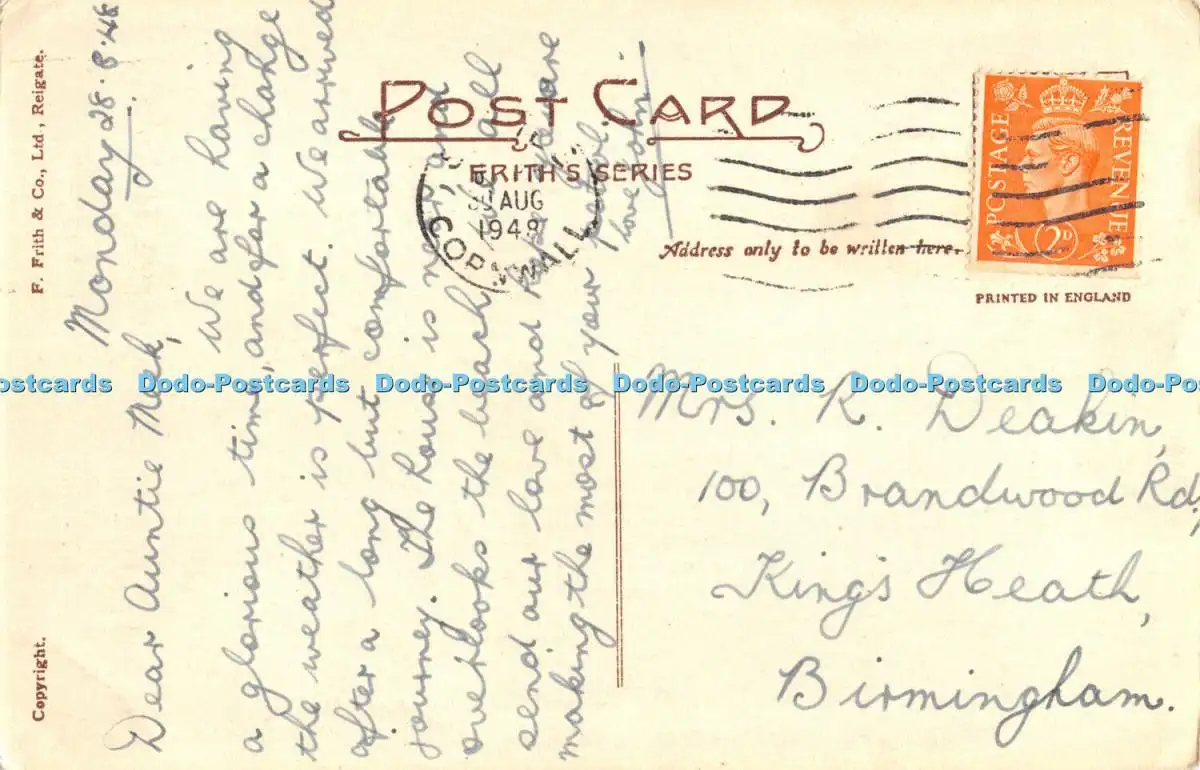 Copyright.
F. Frith & Co., Ltd., Reigate.
Monday 28.8.48
Dear Auntie
We are having
a glorious time, and for a change
the weather is perfect. We arrived
after a long but comfortable
journey. The house is very and
overlooks the beach all
send our love and hope you are
making the most of your
love
POST CARD
FRITH'S SERIES
30 AUG
1948
CORNWALL
Address only to be written here.
POSTAGE
REVENUE
2D
PRINTED IN ENGLAND
Dodo-Postcards Dodo-Postcards Dodo-Postcards Dodo-Postcards Dodo-Postcards Dodo-Postcards
Mrs. R. Deakin,
100, Brandwood Rd,
King's Heath,
Birmingham.